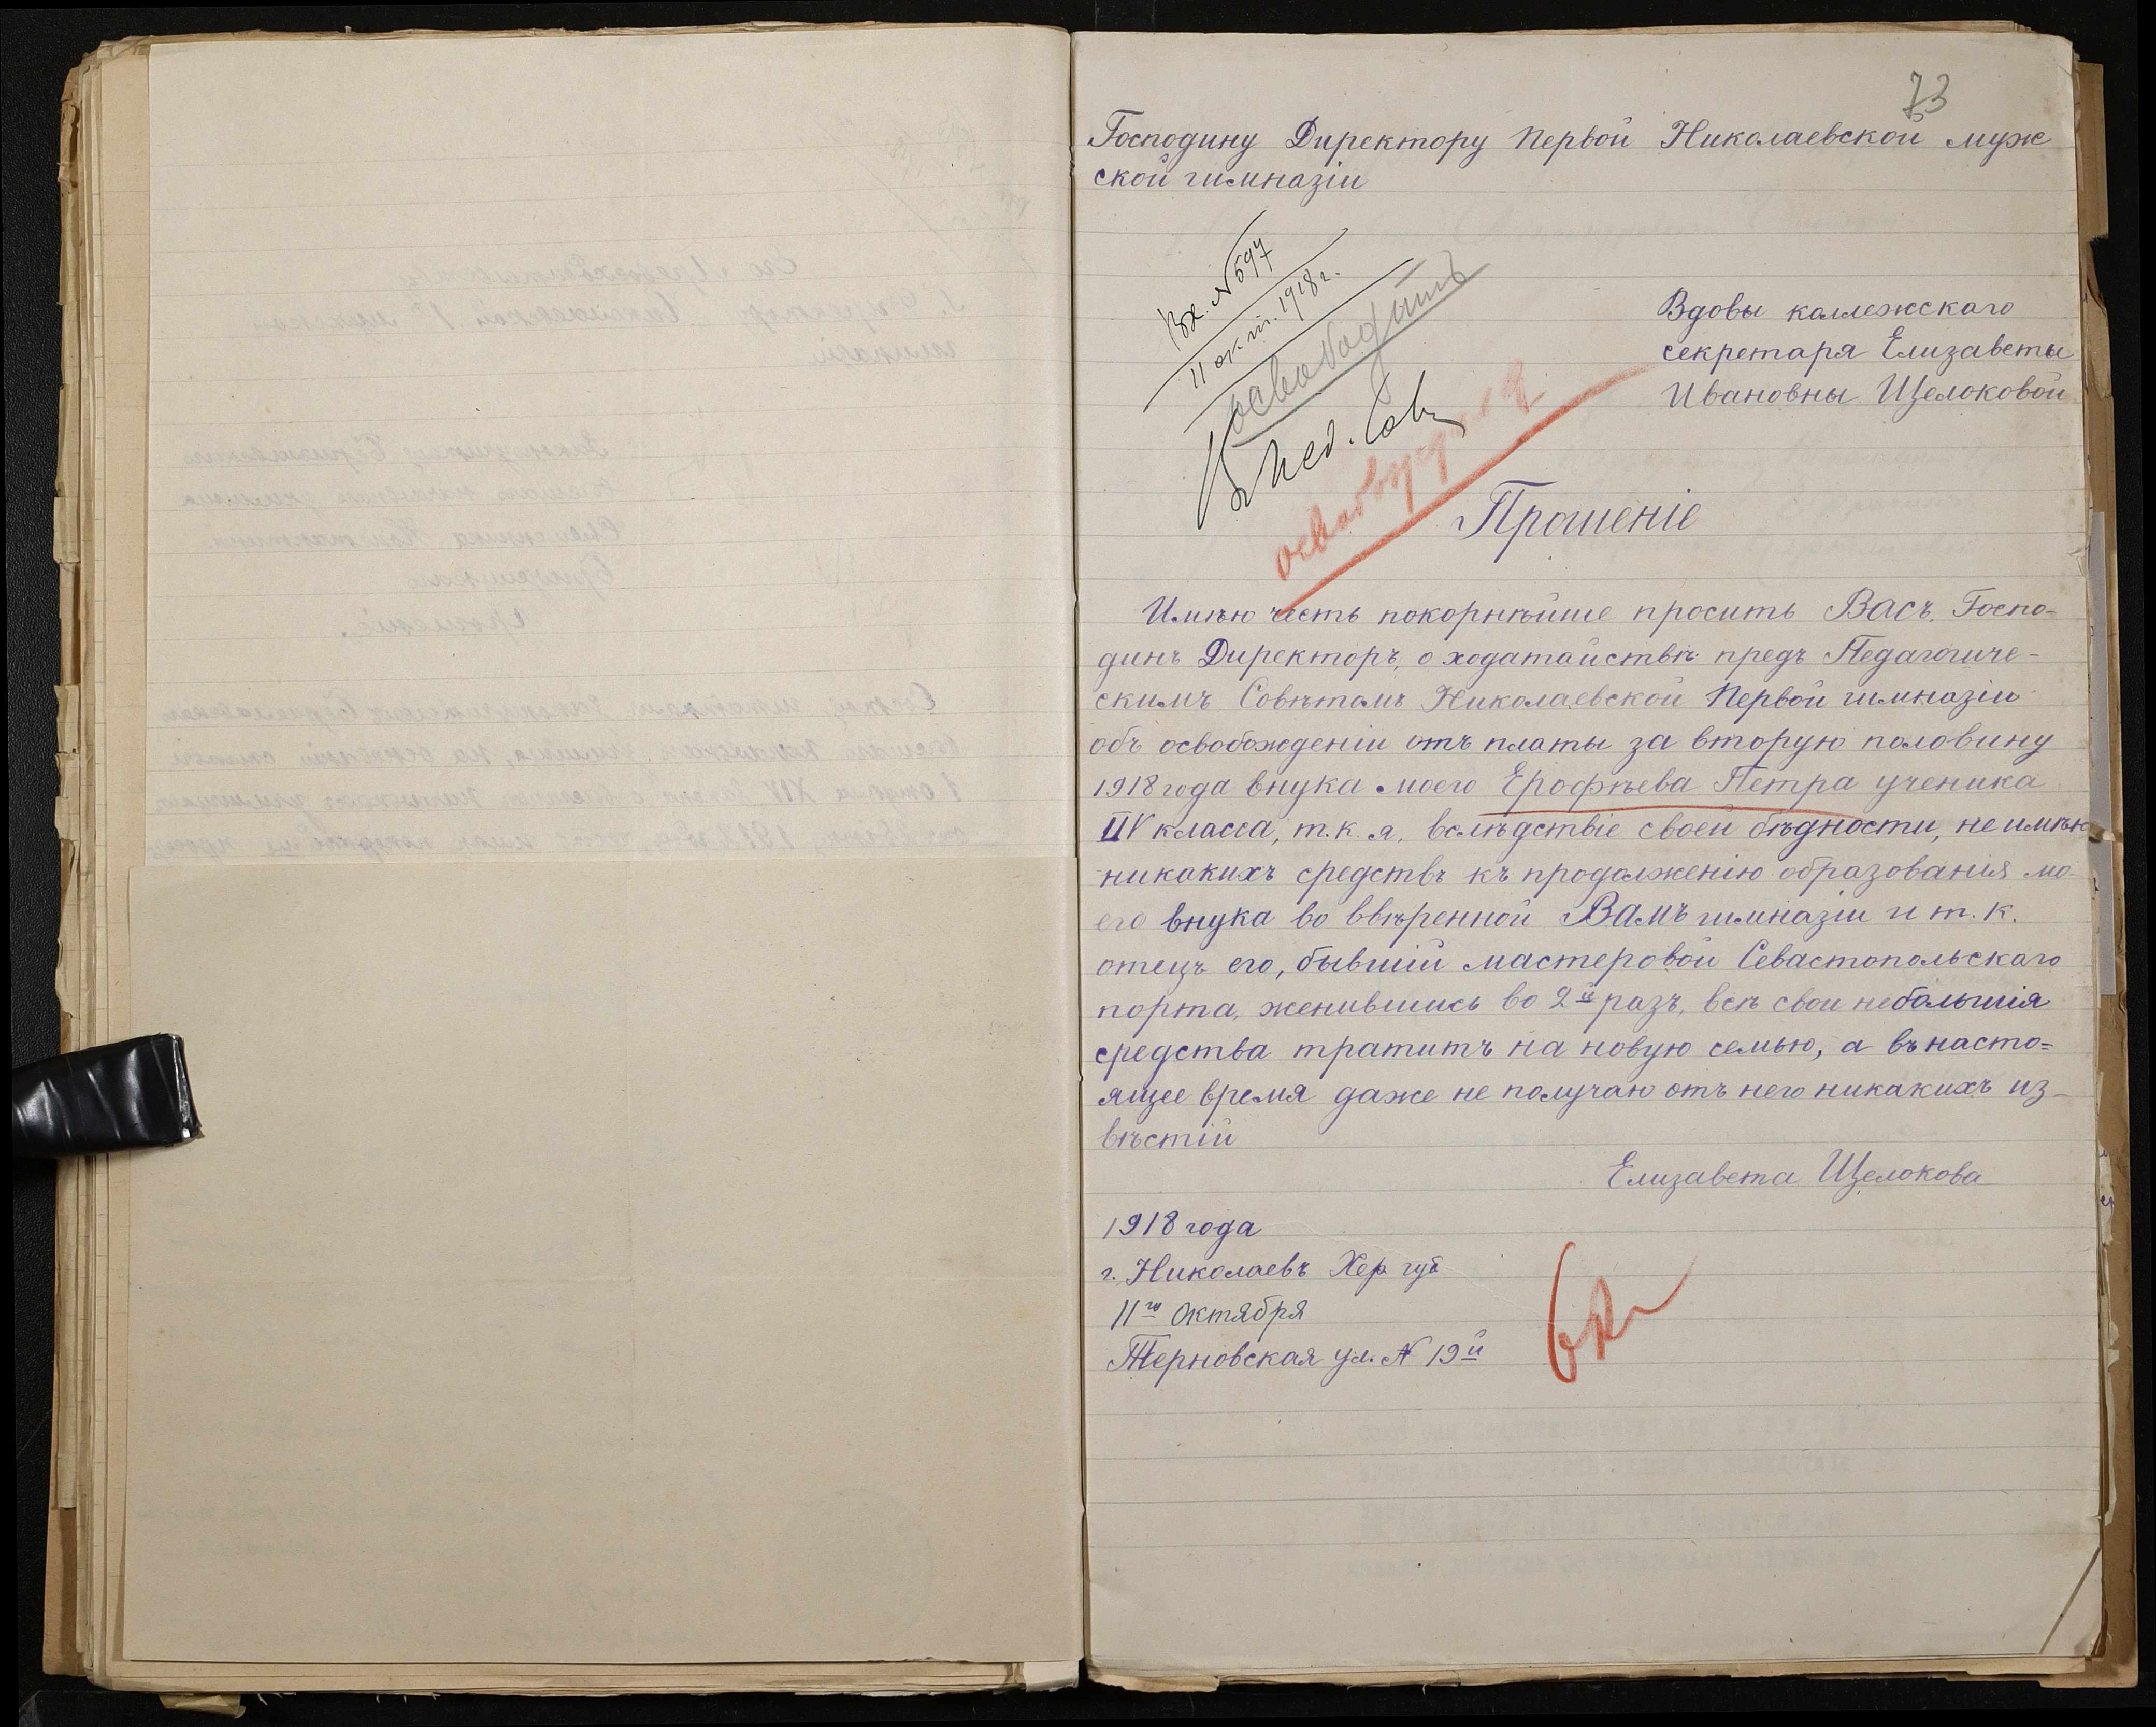 73
Господину Директору Первой Николаевской муж
ской гимназіи
Вх. №597
11 окт. 1918 г.
освободить
Пед. Сов
Вдовы коллежскаго
секретаря Елизаветы
Ивановны Щелоковой
Прошеніе
Имѣю честь покорнѣйше просить Васъ, Госпо-
динъ Директоръ, о ходатайствѣ предъ Педагогиче-
скимъ Совѣтомъ Николаевской Первой гимназіи
объ освобожденіи отъ платы за вторую половину
1918 года внука моего Ерофѣева Петра ученика
IV класса, т. к. я, вслѣдствіе своей бѣдности, не имѣю
никакихъ средствъ къ продолженію образованія мо-
его внука во ввѣренной Вамъ гимназіи и т. к.
отецъ его, бывшій мастеровой Севастопольскаго
порта, женившись во 2й разъ, всѣ свои небольшія
средства тратитъ на новую семью, а въ насто=
ящее время даже не получаю отъ него никакихъ из-
вѣстій
Елизавета Щелокова
1918 года
г. Николаевъ Хер. губ
11го Октября
Терновская ул. № 19й